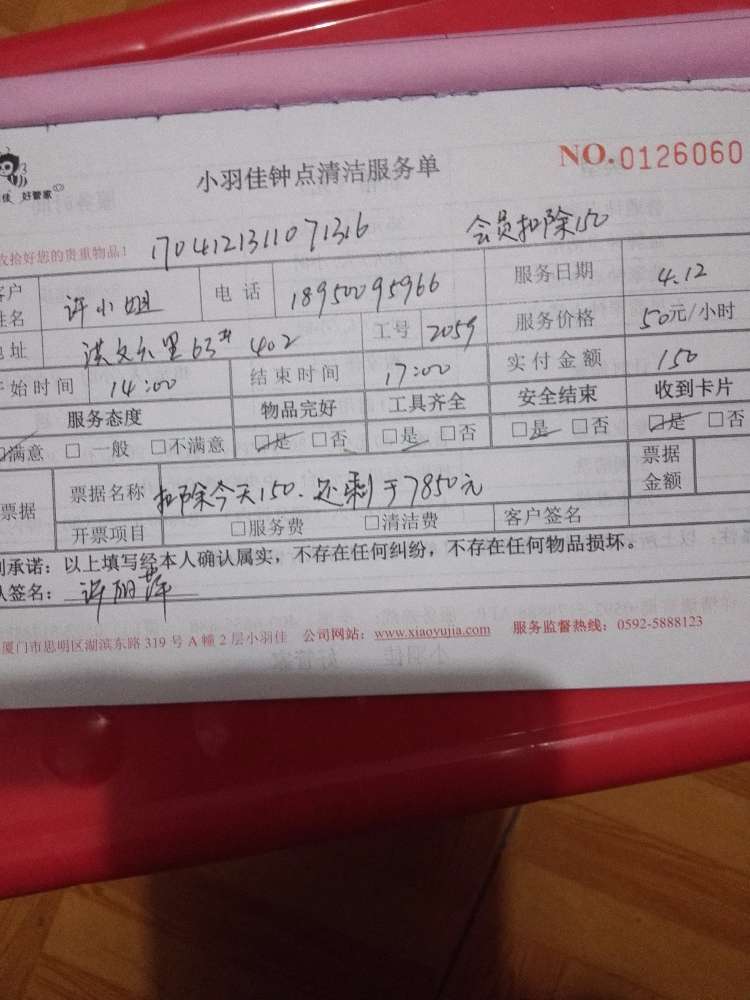 小羽佳钟点清洁服务单 NO.0126060
佳 好管家
收拾好您的贵重物品！ 1704121311071316 会员扣除150
客户姓名 许小姐 电话 18950095966 服务日期 4.12
地址 洪文六里63# 402 工号 2059 服务价格 50元/小时
开始时间 14:00 结束时间 17:00 实付金额 150
服务态度 物品完好 工具齐全 安全结束 收到卡片
□满意 □一般 □不满意 □是 □否 □是 □否 □是 □否 □是 □否
票据 票据名称 扣除今天150.还剩于7850元 票据金额
开票项目 □服务费 □清洁费 客户签名
承诺：以上填写经本人确认属实，不存在任何纠纷，不存在任何物品损坏。
签名：许丽萍
厦门市思明区湖滨东路 319 号 A 幢 2 层小羽佳 公司网站：www.xiaoyujia.com 服务监督热线：0592-5888123